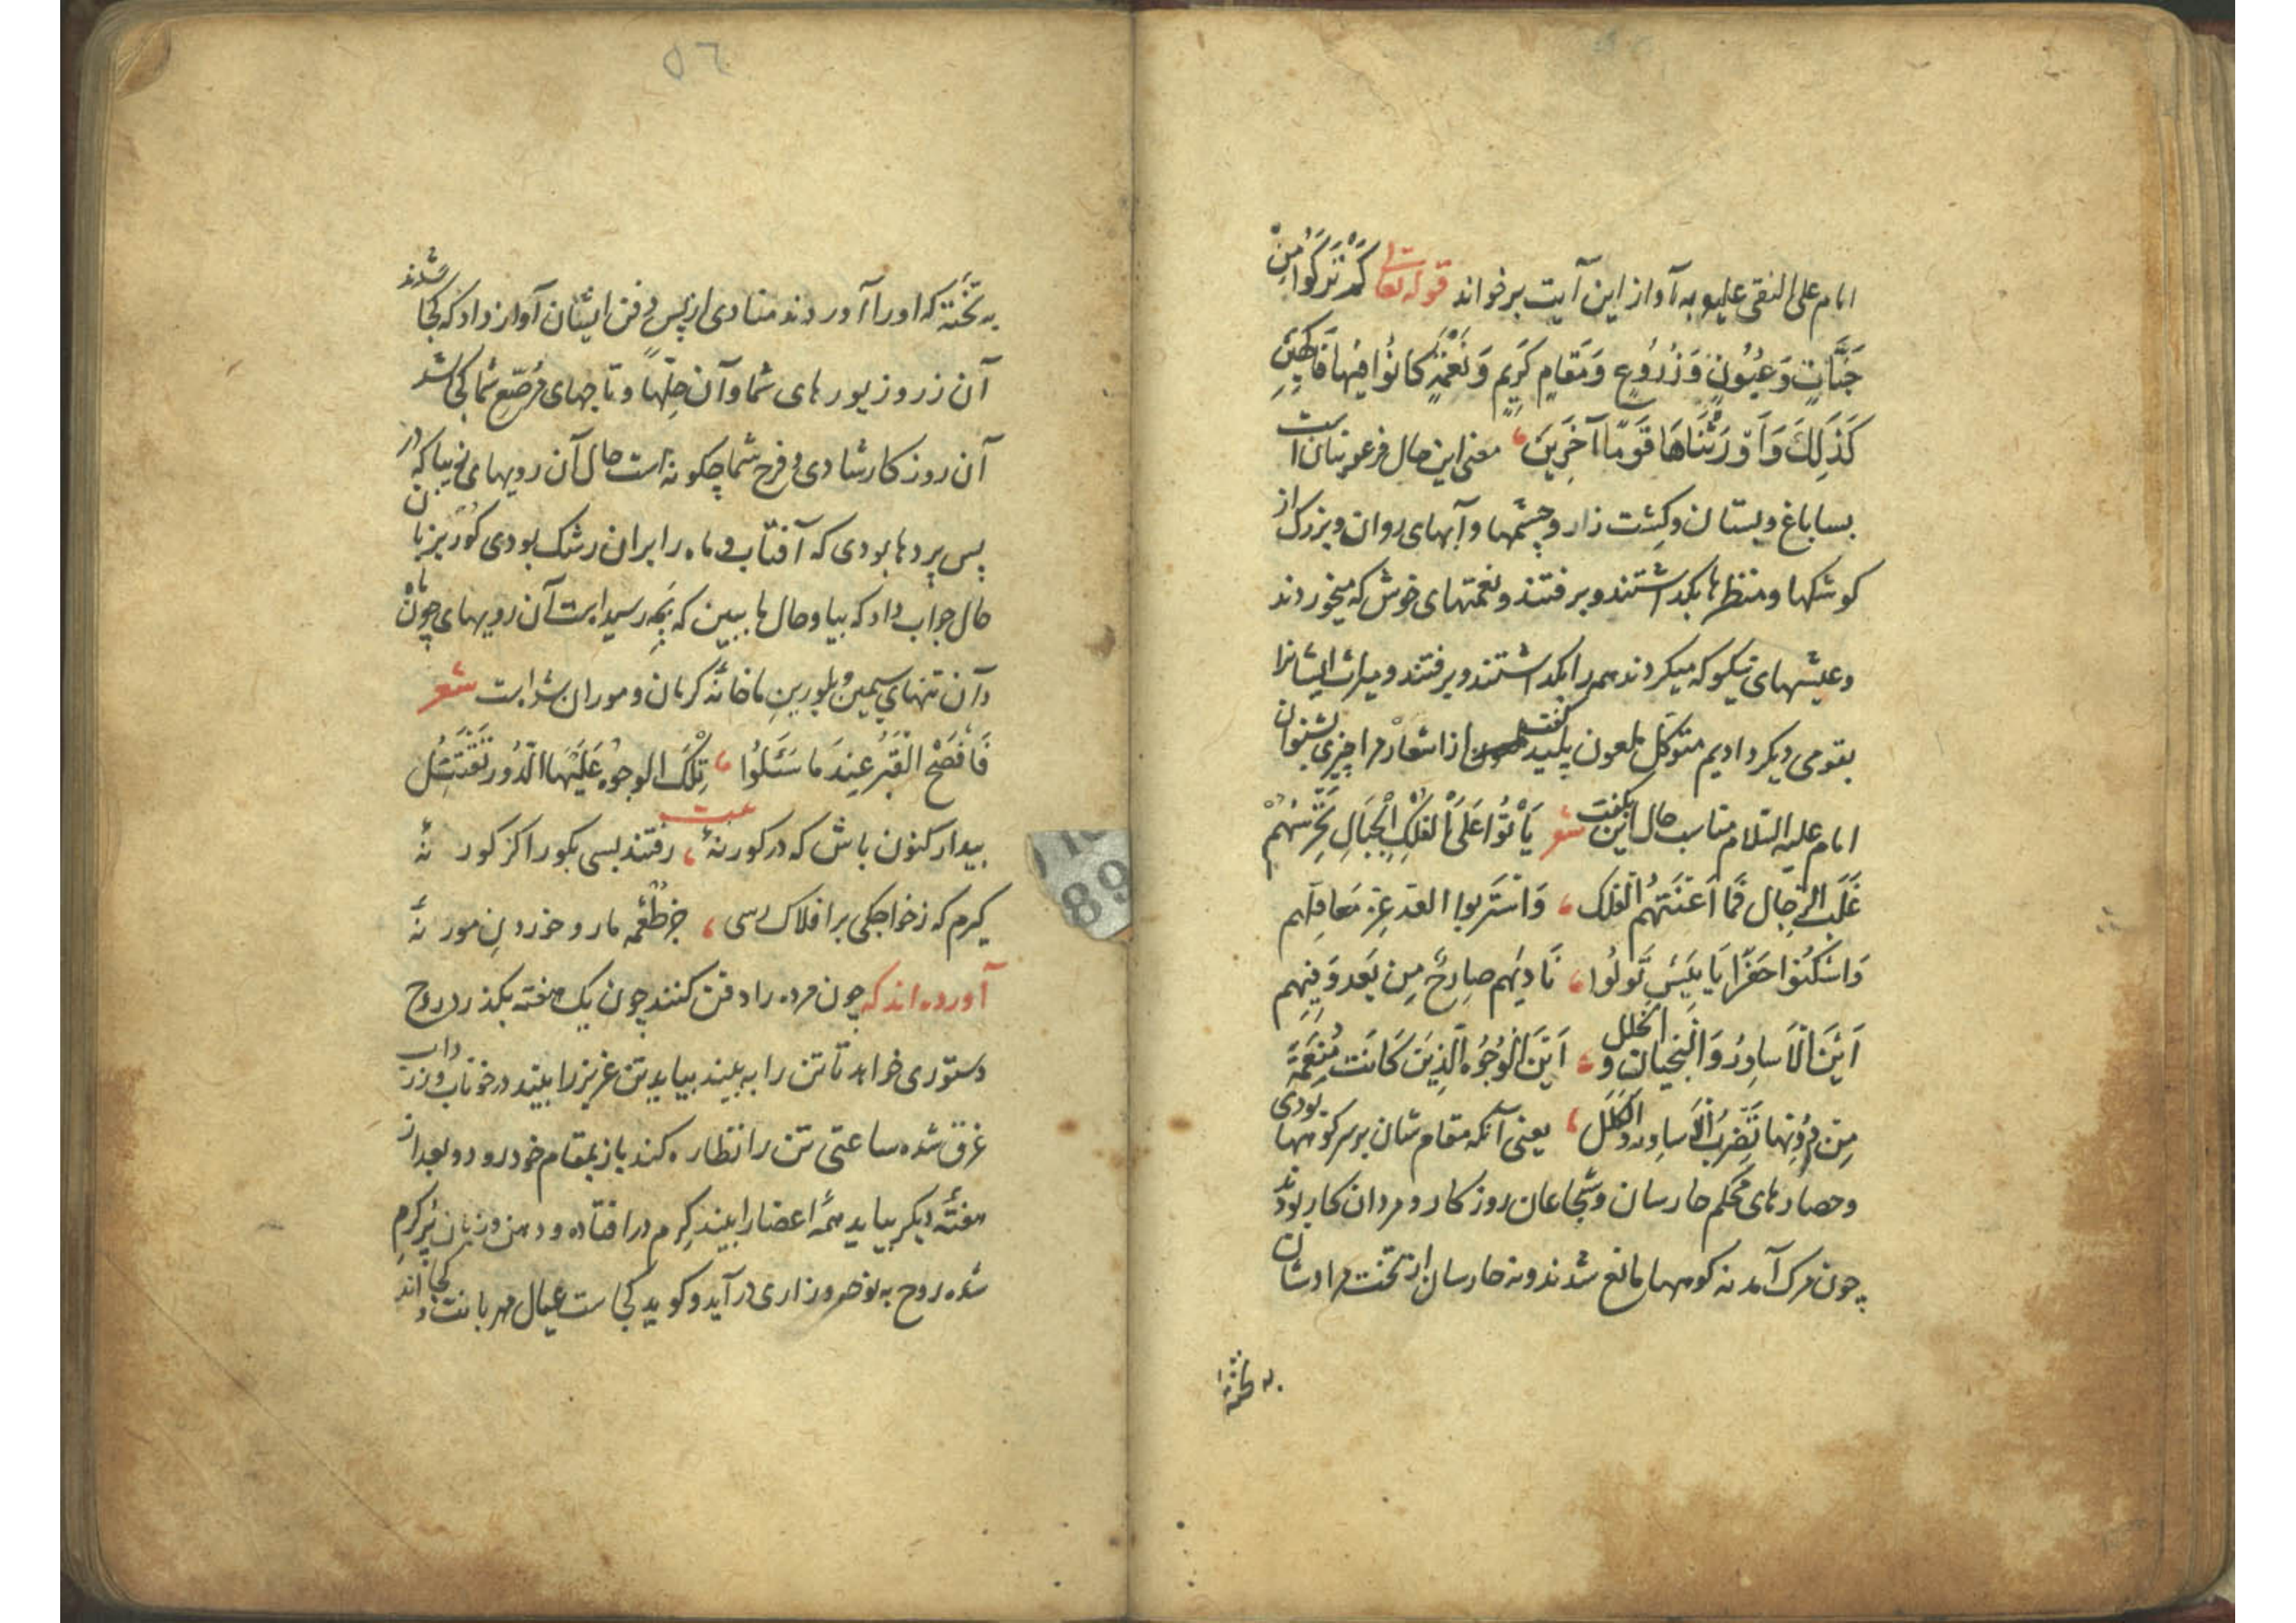 امام علی النقی علیه به آواز این آیت برخواند قوله تعالی كَمْ تَرَكُوا مِنْ
جَنَّاتٍ وَعُيُونٍ وَزُرُوعٍ وَمَقَامٍ كَرِيمٍ وَنَعْمَةٍ كَانُوا فِيهَا فَاكِهِينَ
كَذَلِكَ وَأَوْرَثْنَاهَا قَوْمًا آخَرِينَ معنی این حال فرعونیان است
بسا باغ و بستان و کشت زار و چشمها و آبهای روان و بزرک از
کوشکها و منظرها بکداشتند و برفتند و نعمتهای خوش که میخوردند
و عیشهای نیکو که میکردند همه را بکداشتند و برفتند و میراث ایشانرا
بقومی دیکر دادیم متوکل ملعون پلید گفت از اشعار مرا چیزی بشنوان
امام علیه السلام مناسب حال این بکفت شعر بَاتُوا عَلَى الْقُلَلِ الْجِبَالِ تَحْرُسُهُمْ
غُلْبُ الرِّجَالِ فَمَا أَغْنَتْهُمُ القلل وَاسْتَنزلوا بعد عز معاقلهم
وَاسْكِنُوا حفرًا يَا بِئْسَ نزلُوا نَادَيهُم صارخٌ مِن بَعد دَفنِهِم
اَيْنَ الْاَساوِرُ وَالتِّيجان وَ الحلل اَيْنَ الْوُجُوهُ الَّذِينَ كَانَت مُنْعَمَةً
مِن دُونِها تُضْرَبُ الْاَساور والکلل یعنی آنکه مقام شان بر سر کوهها بودی
و حصارهای محکم حارسان و شجاعان روزکار و مردان کار بودند
چون مرک آمد نه کوهها مانع شدند و نه حارسان از تخت مراد شان
به تخته
٥٦
به تختهٔ که او را آوردند منادی از پس دفن ایشان آواز داد که کجا شدند
آن زر و زیورهای شما و آن حلّها و تاجهای مرصّع شما کجا شد
آن روزکار شادی و فرح شما چکونه است حال آن رویهای زیبا که در
پس پردها بودی که آفتاب و ماه را بر آن رشک بودی کور بزبان
حال جواب داد که بیا و حال ما ببین که بچه رسید است آن رویهای چون ماه
و آن تنهای سیمین و بلورین ما خانهٔ کرمان و موران شد است شعر
فَاَفْصَحَ الْقَبْرُ عِندَ مَا سُئِلُوا تِلْكَ الوجوه عَلَيْهَا الدُّور تَقْتَتِل
بیدار کنون باش که در کور نهٔ رفتند بسی بکور اکر کور نهٔ
کیرم که ز خواجکی بر افلاک رسی جز طعمهٔ مار و خوردن مور نهٔ
آورده اند که چون مرده را دفن کنند چون یک هفته بکذرد روح
دستوری خواهد تا تن را به بیند بیاید تن عزیز را بیند در خوناب و زرداب
غرق شده ساعتی تن را نظاره کند باز بمقام خود رود و بعد از
هفتهٔ دیکر بیاید همهٔ اعضا را بیند کرم در افتاده و دهن و زبان پر کرم
شده روح به نوحه و زاری در آید و کوید کجاست عیال مهربانت و کجا اند
89